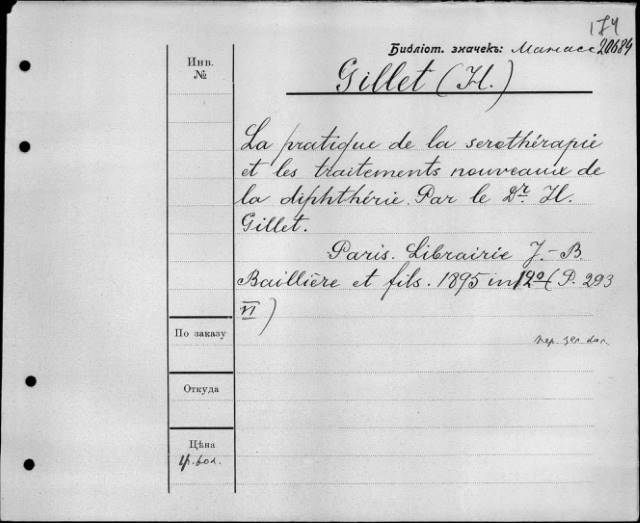 174
Библіот. значекъ: Манасс 20684
Инв.
№
Gillet (H.)
La pratique de la serothérapie
et les traitements nouveaux de
la diphthérie. Par le Dr. H.
Gillet.
Paris. Librairie J.-B
Baillière et fils. 1895 in 12° (P. 293
VI)
По заказу
Откуда
Цѣна